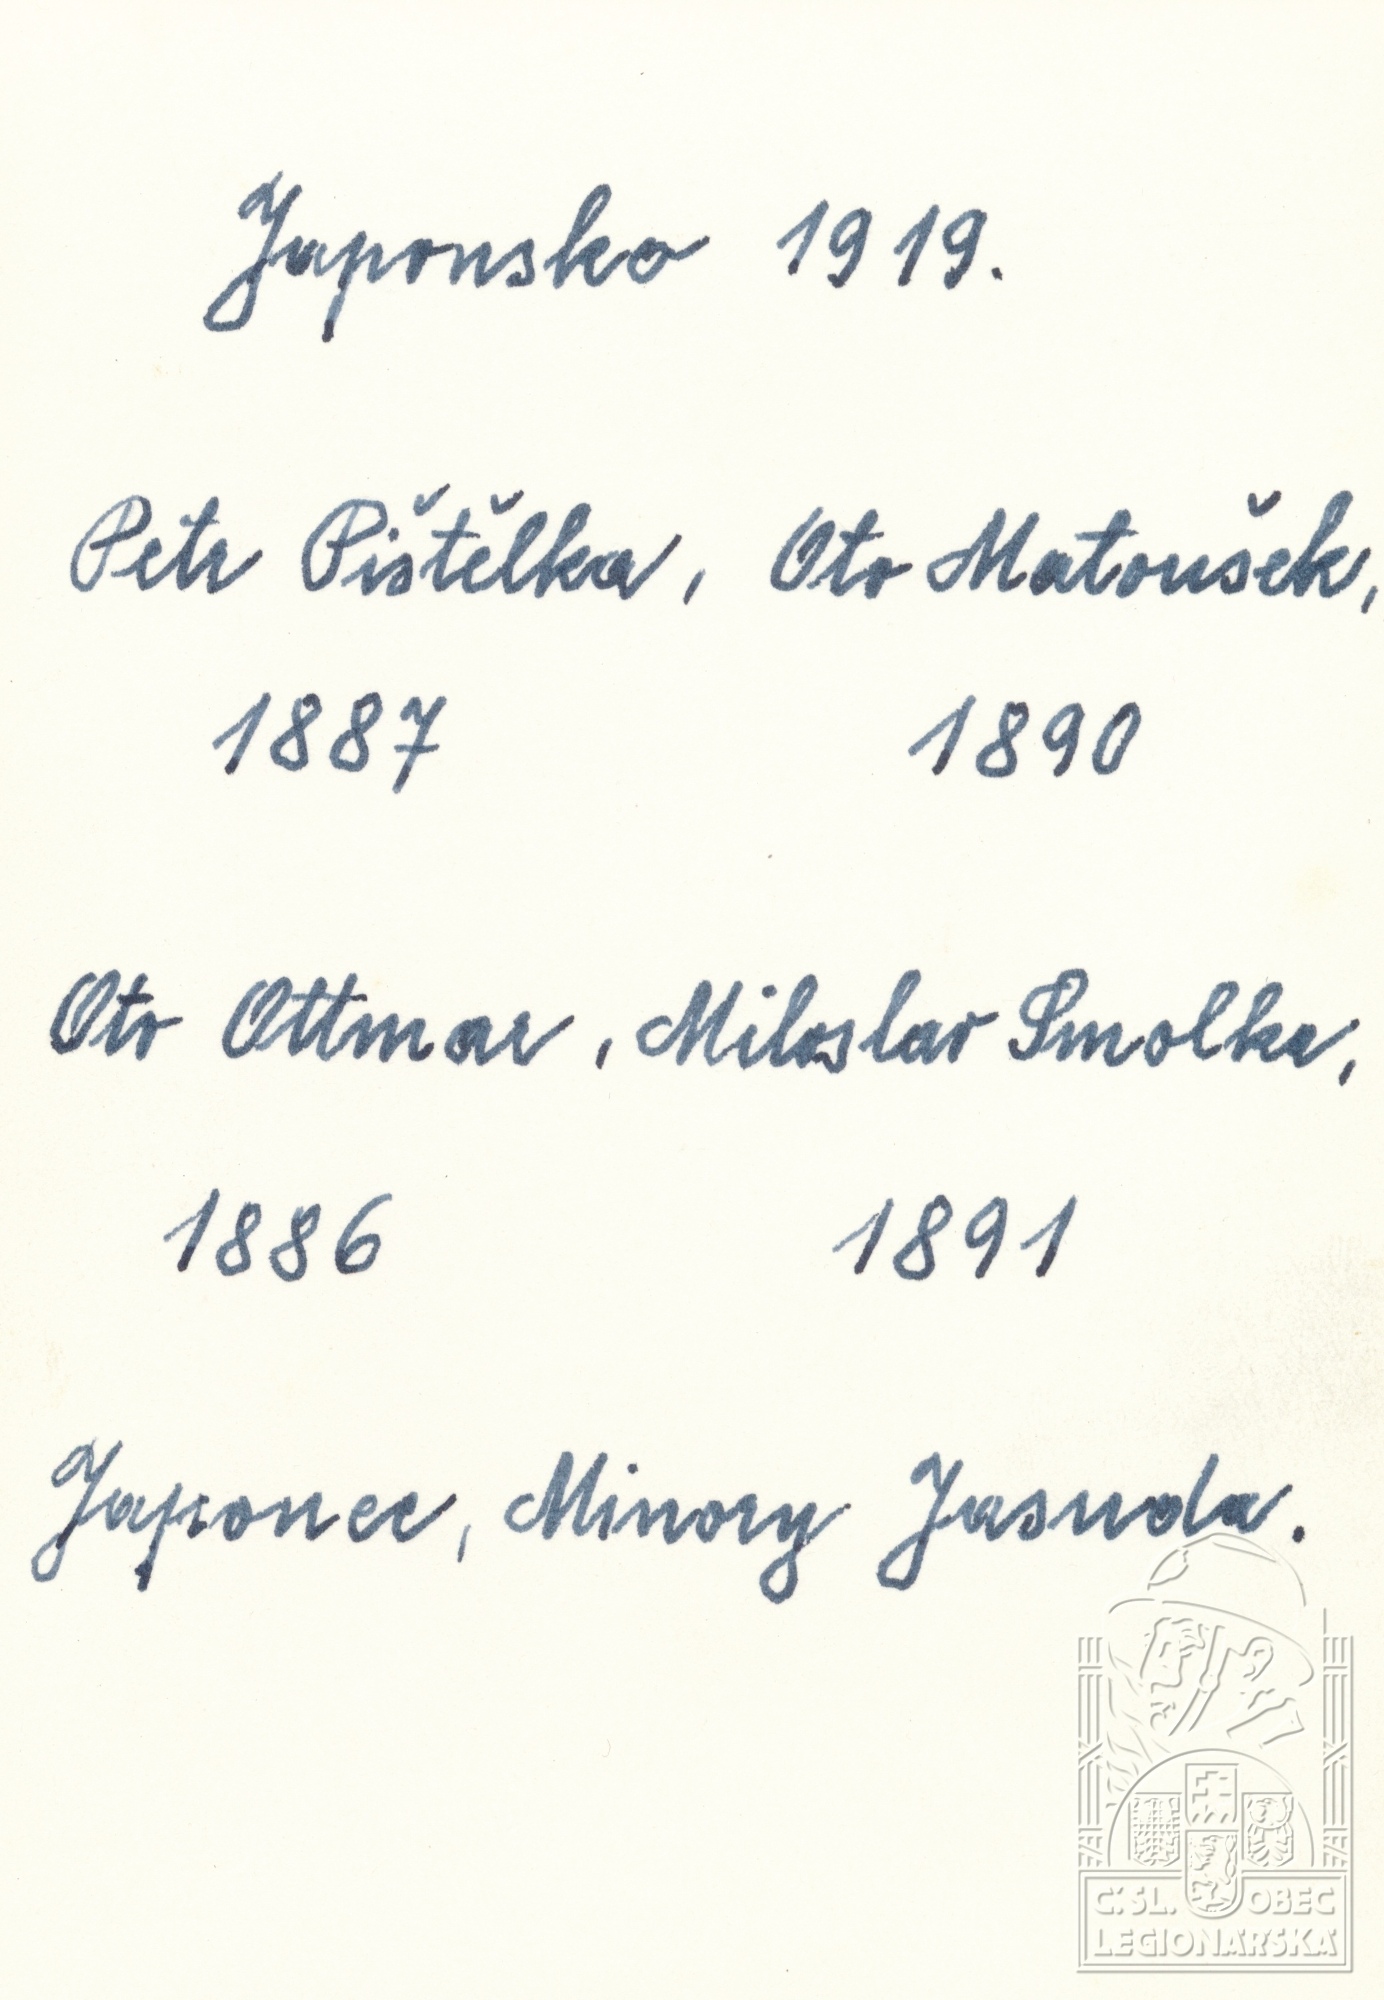 Japonsko 1919.
Petr Pištělka, Oto Matoušek,
1887 1890
Oto Ottmar, Miloslav Smolka,
1886 1891
Japonec, Minory Jasuda.
Č.SL. OBEC
LEGIONÁŘSKÁ